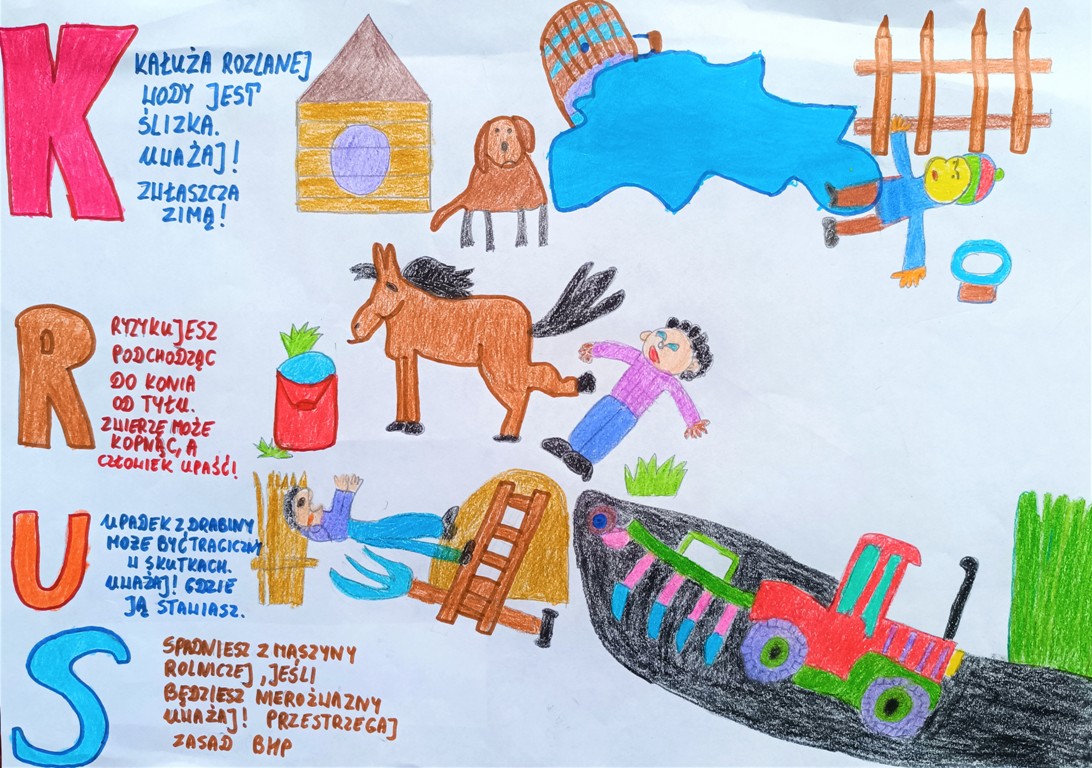 K
KAŁUŻA ROZLANEJ
WODY JEST
ŚLIZKA.
UWAŻAJ!
ZWŁASZCZA
ZIMĄ!
R
RYZYKUJESZ
PODCHODZĄC
DO KONIA
OD TYŁU.
ZWIERZĘ MOŻE
KOPNĄĆ, A
CZŁOWIEK UPAŚĆ!
U
UPADEK Z DRABINY
MOŻE BYĆ TRAGICZNY
W SKUTKACH.
UWAŻAJ! GDZIE
JĄ STAWIASZ.
S
SPADNIESZ Z MASZYNY
ROLNICZEJ, JEŚLI
BĘDZIESZ NIEROZWAŻNY
UWAŻAJ! PRZESTRZEGAJ
ZASAD BHP